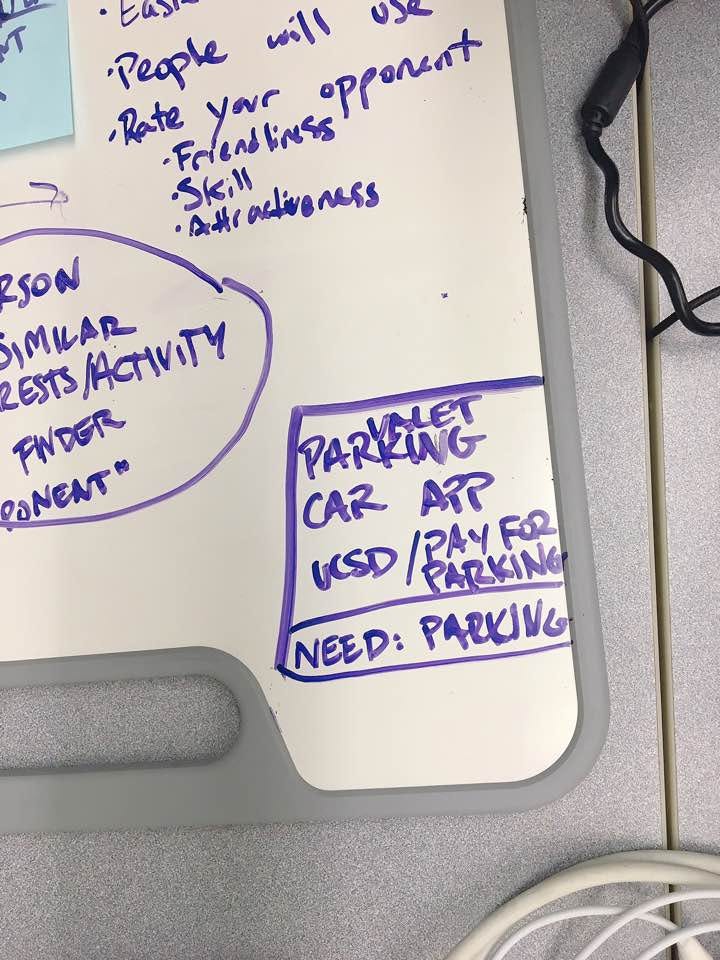 NT
· Easi
· People will use
· Rate your opponent
· Friendliness
· Skill
· Attractiveness
RSON
SIMILAR
RESTS/ACTIVITY
FINDER
PONENT"
VALET
PARKING
CAR APP
UCSD / PAY FOR
PARKING
NEED: PARKING